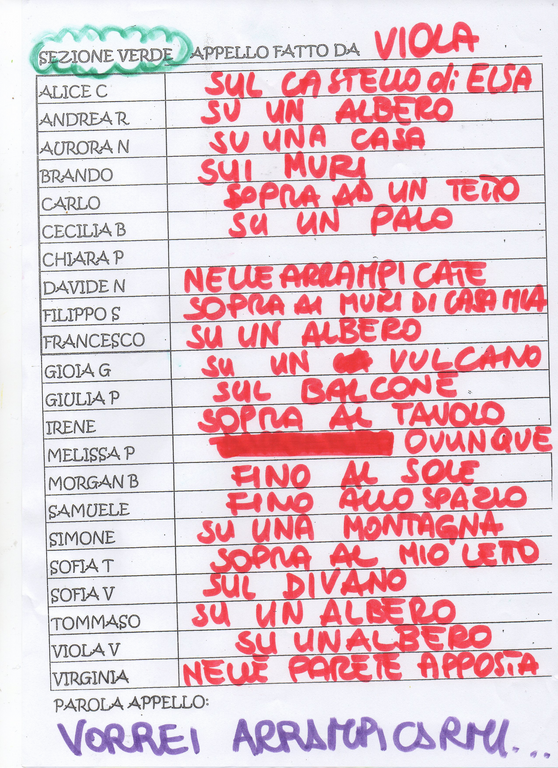 SEZIONE VERDE APPELLO FATTO DA VIOLA
ALICE C SUL CASTELLO di ELSA
ANDREA R SU UN ALBERO
AURORA N SU UNA CASA
BRANDO SUI MURI
CARLO SOPRA AD UN TETTO
CECILIA B SU UN PALO
CHIARA P
DAVIDE N NELLE ARRAMPICATE
FILIPPO S SOPRA AI MURI DI CASA MIA
FRANCESCO SU UN ALBERO
GIOIA G SU UN VULCANO
GIULIA P SUL BALCONE
IRENE SOPRA AL TAVOLO
MELISSA P OVUNQUE
MORGAN B FINO AL SOLE
SAMUELE FINO ALLO SPAZIO
SIMONE SU UNA MONTAGNA
SOFIA T SOPRA AL MIO LETTO
SOFIA V SUL DIVANO
TOMMASO SU UN ALBERO
VIOLA V SU UN ALBERO
VIRGINIA NELLE PARETE APPOSTA
PAROLA APPELLO:
VORREI ARRAMPICARMI...